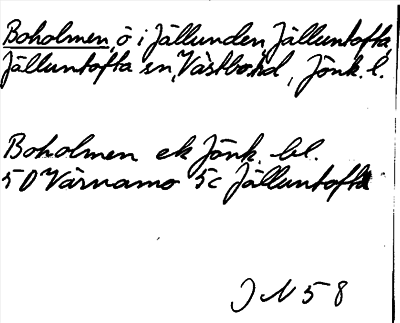 Boholmen, ö i Jällunden, Jälluntofta,
Jälluntofta sn, Västbo hd, Jönk. l.
Boholmen ek Jönk. bl.
5D Värnamo 5c Jälluntofta
J N 58